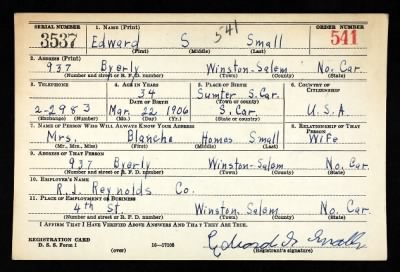 SERIAL NUMBER 1. NAME (Print) ORDER NUMBER
3537 Edward S Small 541 541
(First) (Middle) (Last)
2. ADDRESS (Print)
937 Byerly Winston-Salem No. Car.
(Number and street or R. F. D. number) (Town) (County) (State)
3. TELEPHONE 4. AGE IN YEARS 5. PLACE OF BIRTH 6. COUNTRY OF CITIZENSHIP
34 Sumter S. Car.
DATE OF BIRTH (Town or county)
2-2983 Mar. 22 1906 S. Car U.S.A.
(Exchange) (Number) (Mo.) (Day) (Yr.) (State or country)
7. NAME OF PERSON WHO WILL ALWAYS KNOW YOUR ADDRESS 8. RELATIONSHIP OF THAT PERSON
Mrs. Blanche Homes Small Wife
(Mr., Mrs., Miss) (First) (Middle) (Last)
9. ADDRESS OF THAT PERSON
937 Byerly Winston-Salem No. Car.
(Number and street or R. F. D. number) (Town) (County) (State)
10. EMPLOYER'S NAME
R.J. Reynolds Co.
11. PLACE OF EMPLOYMENT OR BUSINESS
4th St. Winston-Salem No. Car.
(Number and street or R. F. D. number) (Town) (County) (State)
I AFFIRM THAT I HAVE VERIFIED ABOVE ANSWERS AND THAT THEY ARE TRUE.
REGISTRATION CARD
D. S. S. Form 1 (over) 16—17105 Edward S. Small
(Registrant's signature)